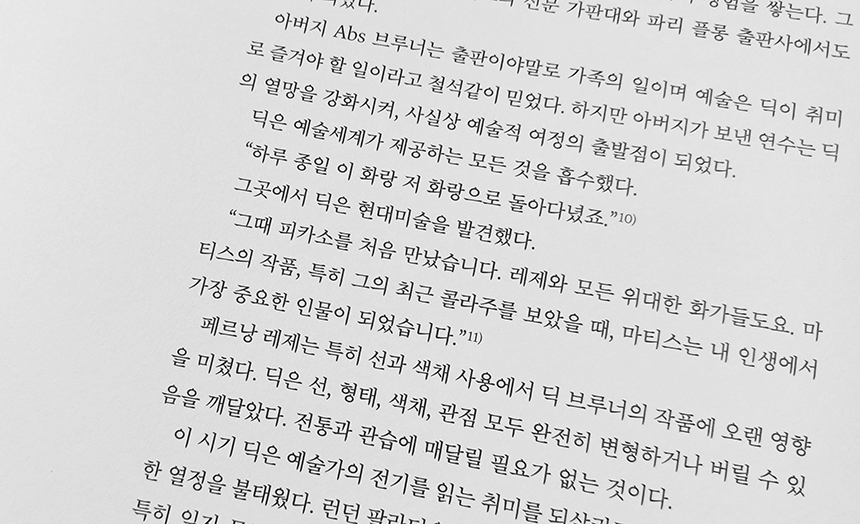 신문 가판대와 파리 플롱 출판사에서도
아버지 Abs 브루너는 출판이야말로 가족의 일이며 예술은 딕이 취미
로 즐겨야 할 일이라고 철석같이 믿었다. 하지만 아버지가 보낸 연수는 딕
의 열망을 강화시켜, 사실상 예술적 여정의 출발점이 되었다.
딕은 예술세계가 제공하는 모든 것을 흡수했다.
“하루 종일 이 화랑 저 화랑으로 돌아다녔죠.”10)
그곳에서 딕은 현대미술을 발견했다.
“그때 피카소를 처음 만났습니다. 레제와 모든 위대한 화가들도요. 마
티스의 작품, 특히 그의 최근 콜라주를 보았을 때, 마티스는 내 인생에서
가장 중요한 인물이 되었습니다.”11)
페르낭 레제는 특히 선과 색채 사용에서 딕 브루너의 작품에 오랜 영향
을 미쳤다. 딕은 선, 형태, 색채, 관점 모두 완전히 변형하거나 버릴 수 있
음을 깨달았다. 전통과 관습에 매달릴 필요가 없는 것이다.
이 시기 딕은 예술가의 전기를 읽는 취미를
한 열정을 불태웠다. 런던
특히